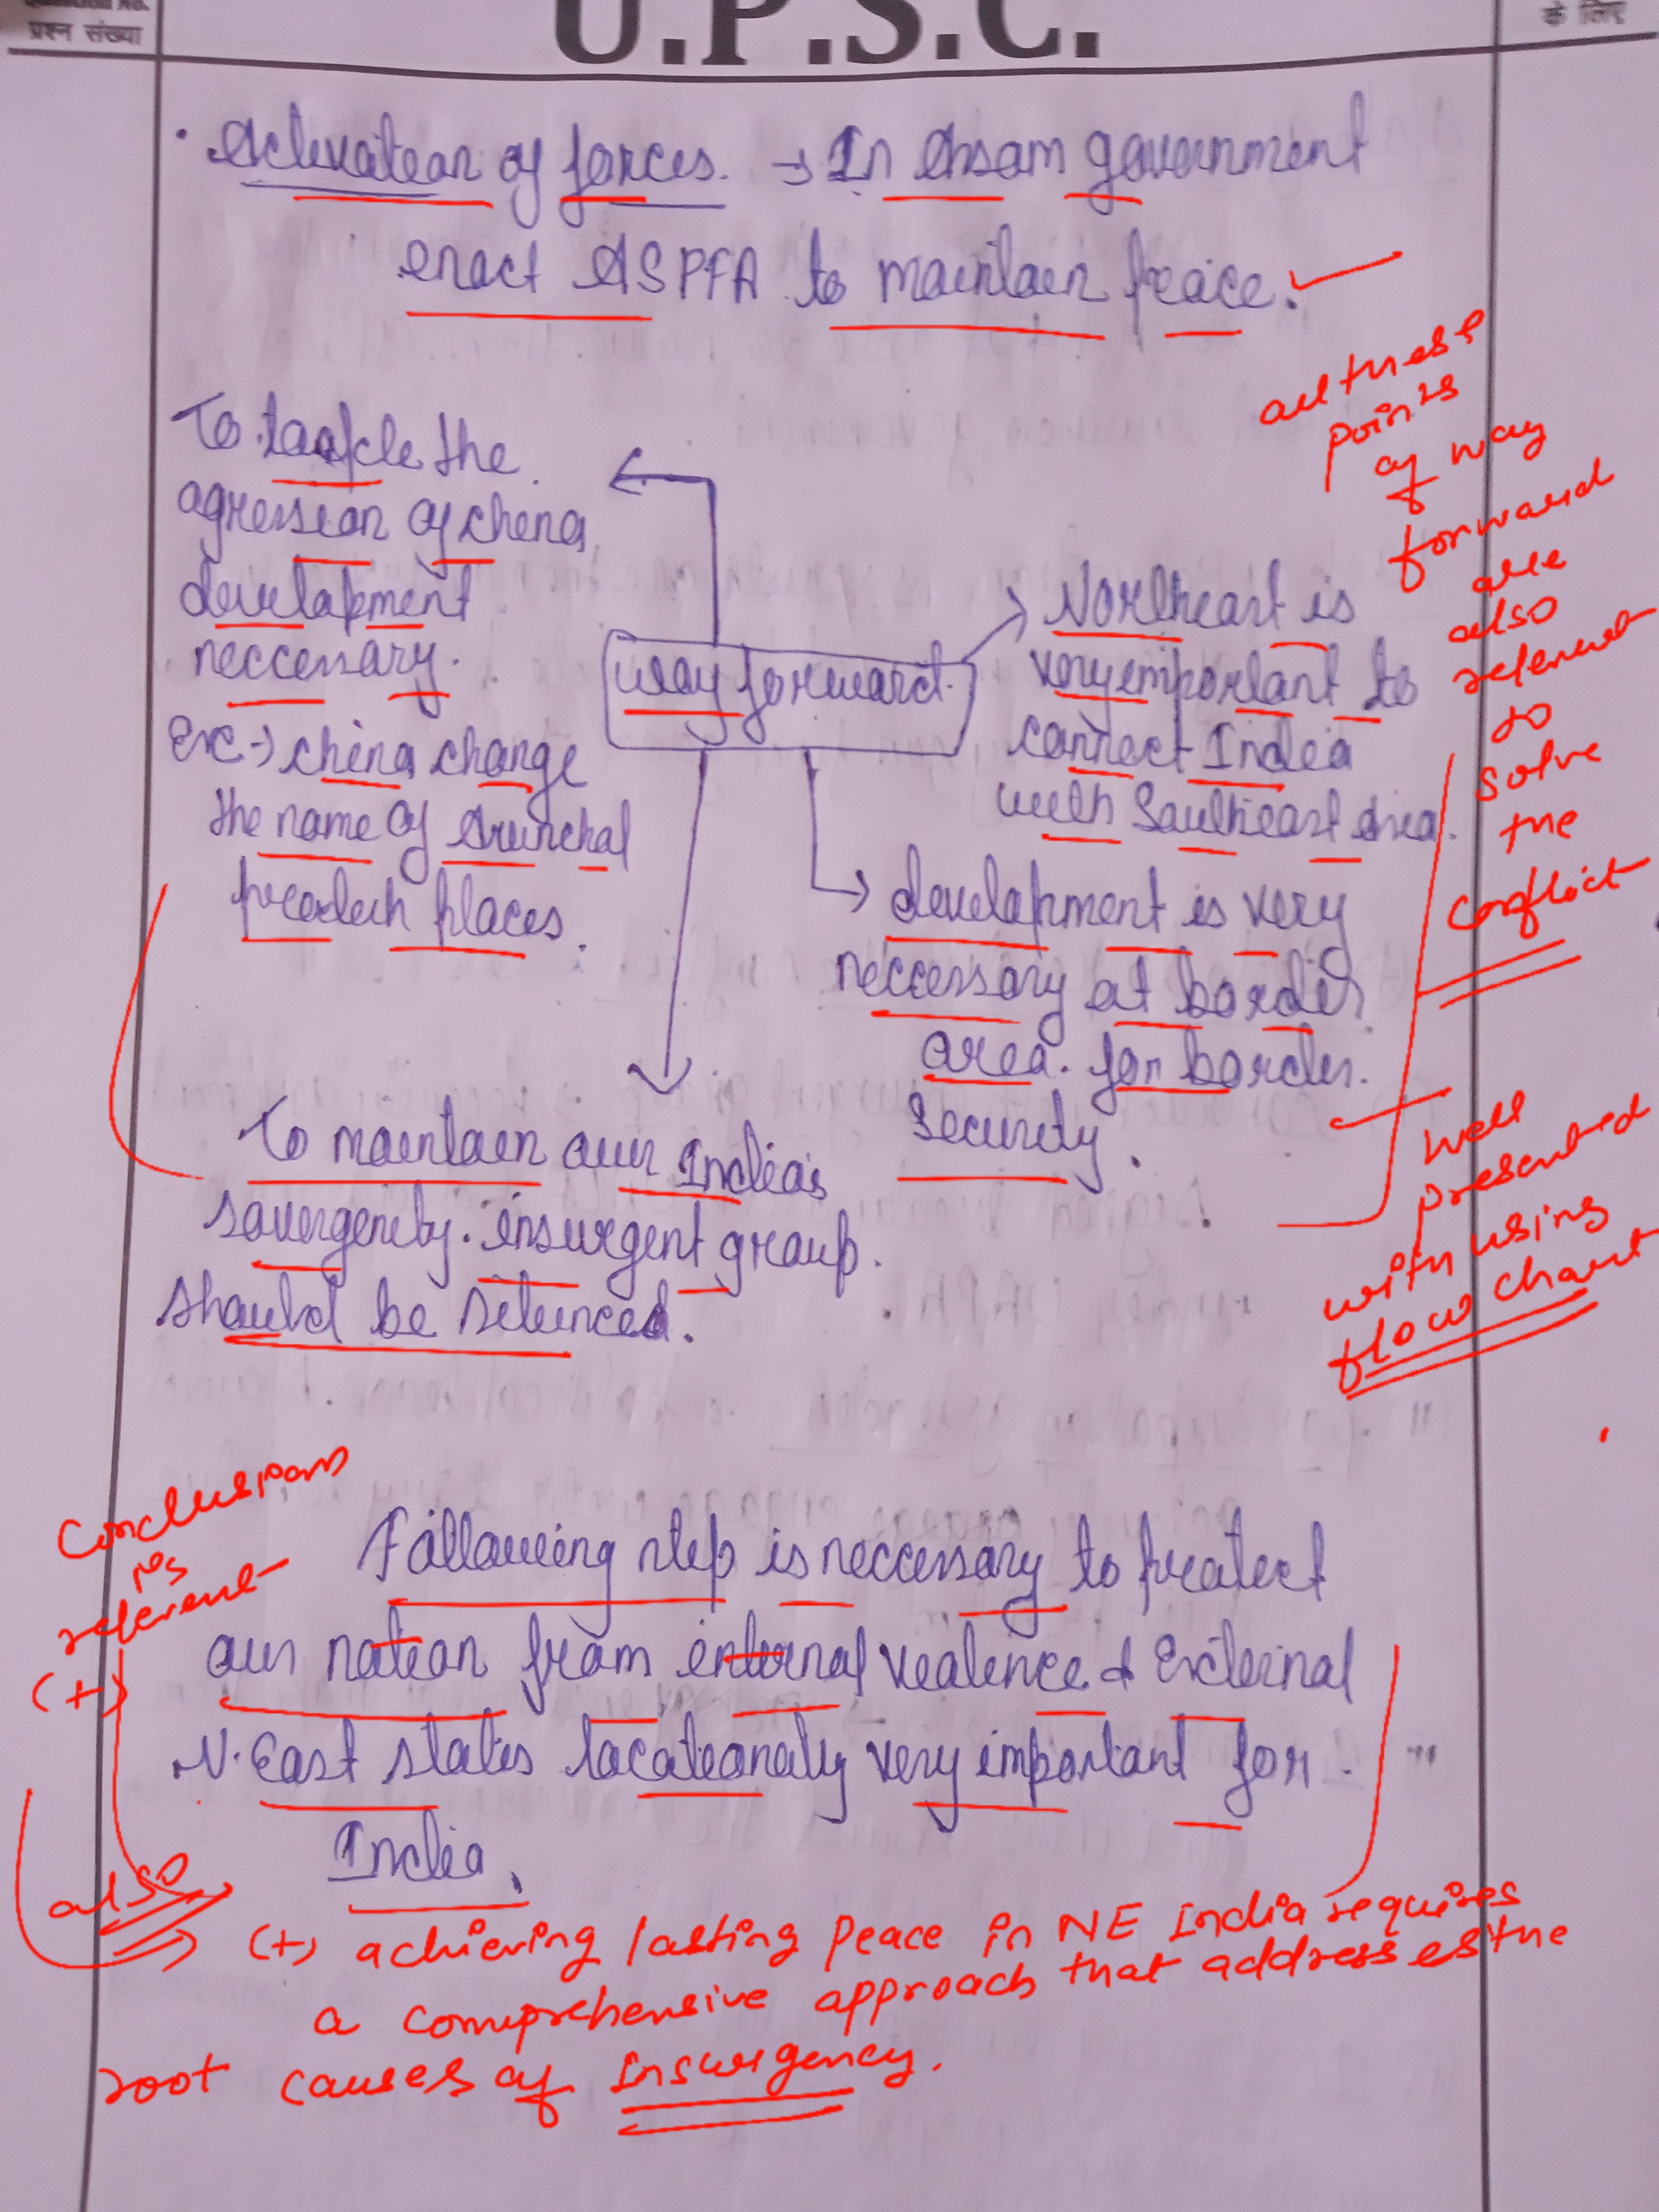 प्रश्न संख्या
U.P.S.C.
के लिए
• Activation of forces. → In Assam government
enact ASPFA to maintain peace.
all these
points
of way
forward
are
also
relevent
to
solve
the
conflict
To tackle the
agression of china
development
neccessary.
Ex:-) china change
the name of Arunchal
pradesh places.
way forward.
Northeast is
very important to
connect India
with Southeast Asia.
development is very
neccessary at border
area. for border.
Security.
well
presented
with using
flow chart
To maintain our India's
insurgent group.
should be
Conclusion
is
relevent
(+)
also
Following step is neccessary to protect
our nation from internal vealence & External
N. East states locationally very important for
India.
(+) achieving lasting peace in NE India requires
a comprehensive approach that addresses the
root causes of Insurgency.